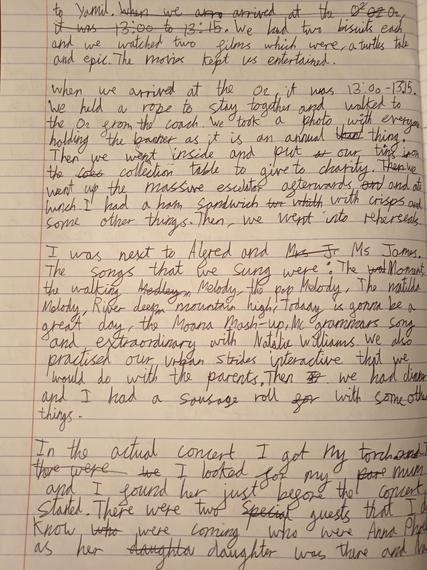 to Yamil. When we arro arrived at the O² O2 O2,
it was 13:00 to 13:15. We had two biscuits each
and we watched two films which were, a turtles tale
and epic. The movies kept us entertained.
when we arrived at the O2, it was 13:00-13:15.
We held a rope to stay together and walked to
the O2 from the coach. We took a photo with everyone
holding the banner as it is an annual thing.
Then we went inside and put our tins
the collection table to give to charity. Then we
went up the massive escalator afterwards, and ate
lunch. I had a ham sandwich with crisps and
some other things. Then, we went into rehersals
I was next to Alfred and Mrs Jr Ms James.
The songs that we sung were: The Moment,
the walking Medley, Melody, the pop Melody, The matilda
Melody, River deep mountain high, Today is gonna be a
great day, the Moana Mash-up, Mc grammars song
and extraordinary with Natalie Williams. We also
practised our urban strides interactive that we
would do with the parents. Then we had dinner
and I had a sausage roll for with some other
things.
In the actual concert I got my torch and I
there were we I looked for my mum
and I found her just before the concert
started. There were two special guests that I
know who were coming who were Anna
as her daughta daughter was there and